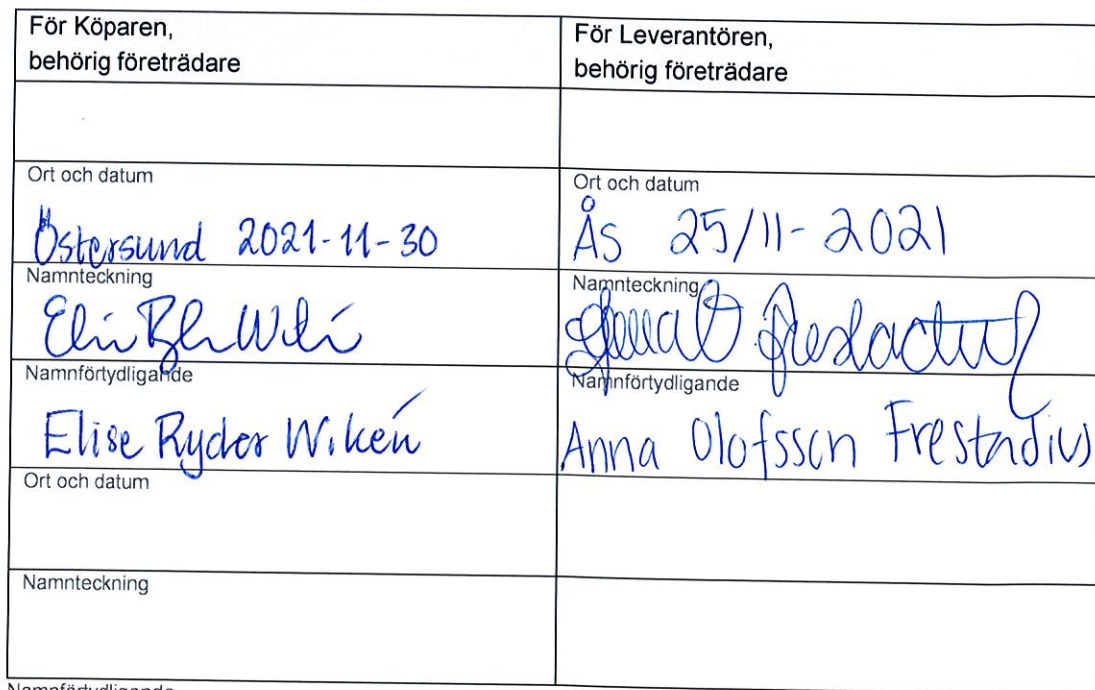 För Köparen,
behörig företrädare
För Leverantören,
behörig företrädare
Ort och datum
Östersund 2021-11-30
Ort och datum
Ås 25/11-2021
Namnteckning
Namnteckning
Namnförtydligande
Elise Ryder Wikén
Namnförtydligande
Anna Olofsson Frestadius
Ort och datum
Namnteckning
Namnförtydligande